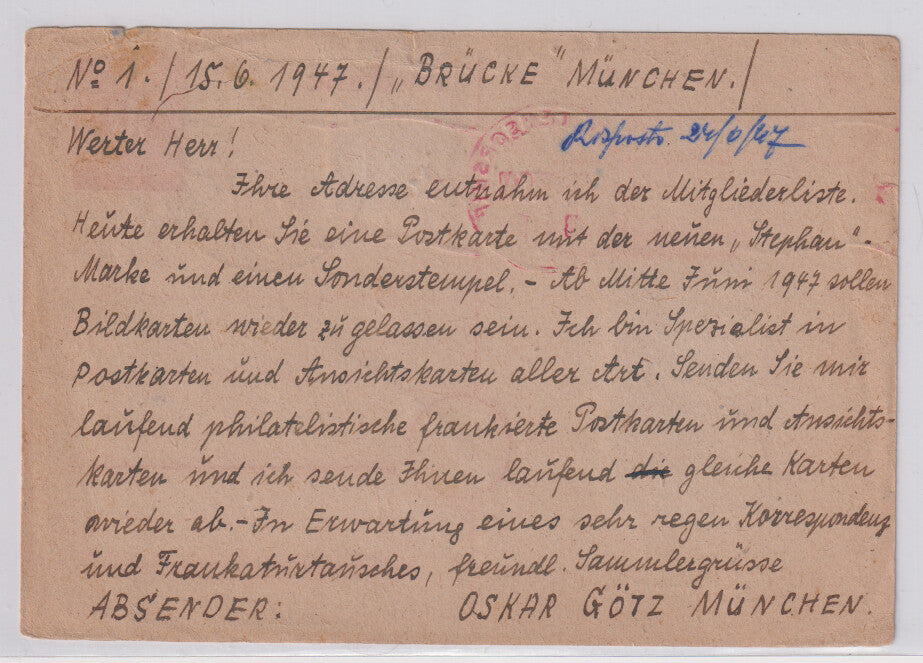 No 1. / 15. 6. 1947. / „BRÜCKE“ MÜNCHEN. /
Werter Herr!
Ihre Adresse entnahm ich der Mitgliederliste.
Heute erhalten Sie eine Postkarte mit der neuen „Stephan“-
Marke und einen Sonderstempel. - Ab Mitte Juni 1947 sollen
Bildkarten wieder zugelassen sein. Ich bin Spezialist in
Postkarten und Ansichtskarten aller Art. Senden Sie mir
laufend philatelistische frankierte Postkarten und Ansichts-
karten und ich sende Ihnen laufend die gleiche Karten
wieder ab. - In Erwartung eines sehr regen Korrespondenz
und Frankaturtausches, freundl. Sammlergrüsse
ABSENDER: OSKAR GÖTZ MÜNCHEN.